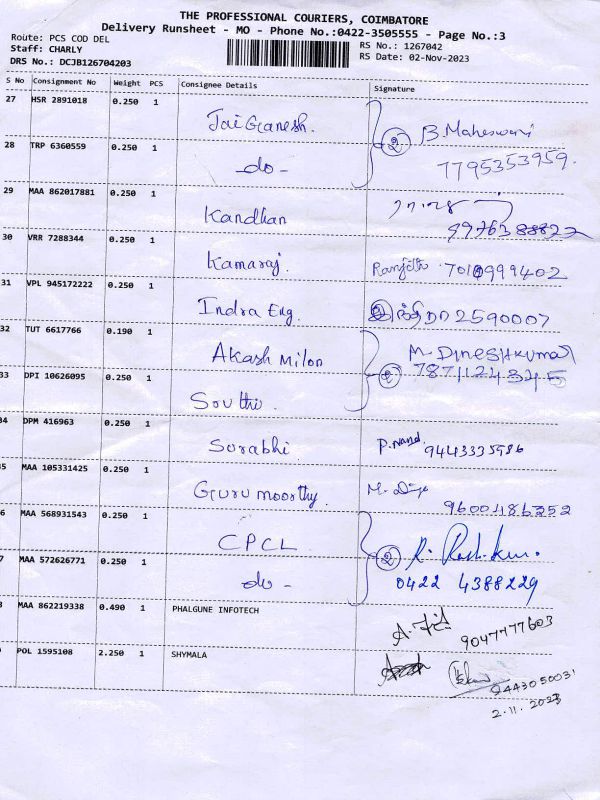 THE PROFESSIONAL COURIERS, COIMBATORE
Delivery Runsheet - MO - Phone No.:0422-3505555 - Page No.:3
Route: PCS COD DEL
Staff: CHARLY
DRS No.: DCJB126704203
RS No.: 1267042
RS Date: 02-Nov-2023
S No Consignment No Weight PCS Consignee Details Signature
27 HSR 2891018 0.250 1 Jai Ganesh. 2 B. Maheswari
7795353959.
28 TRP 6360559 0.250 1 -do-
29 MAA 862017881 0.250 1 Kandhan
30 VRR 7288344 0.250 1 Kamaraj. Ranjith 7010999402
31 VPL 945172222 0.250 1 Indra Eng. இந்திரா 2590007
32 TUT 6617766 0.190 1 Akash Milon 2 M. DINESHKUMAR
7871124345
33 DPI 10626095 0.250 1
34 DPM 416963 0.250 1 Surabhi P. Nand. 9443335986
5 MAA 105331425 0.250 1 Gurumoorthy. 9600486252
6 MAA 568931543 0.250 1 CPCL 2
7 MAA 572626771 0.250 1 do - 0422 4388229
MAA 862219338 0.490 1 PHALGUNE INFOTECH 9047777603
POL 1595108 2.250 1 SHYMALA 9443050031
2.11.2023